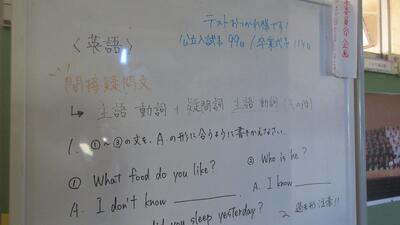 テストおつかれ様です!
〈英語〉
公立入試まで 99日 / 卒業式まで 114日
間接疑問文
↳ 主語 動詞 + 疑問詞 主語 動詞 (その他)
1. ①~③の文を、Aの形に合うように書きかえなさい。
① What food do you like?
A. I don't know
③ Who is he?
A. I know
did you sleep yesterday?
過去形注意!!